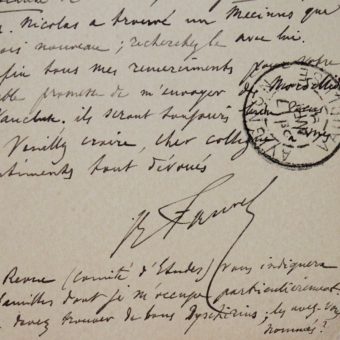 . Nicolas a trouvé un Mecinus que
ois nouveau ; recherchez le avec lui.
fin tous mes remerciments pour votre
able promesse de m'envoyer des Mordellid
aucluse. ils seront toujours
Veuillez croire, cher collègue
timents tout dévoués
Fauvel
Revue (Comité d'Études) vous indiquera
familles dont je m'occupe particulièrement.
devez trouver de bons Dyschirius ; les avez-vous
nommés ?